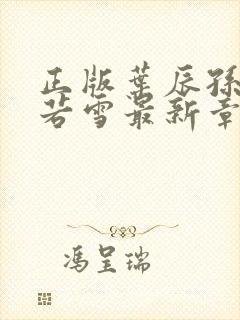 正版叶辰孙
若雪最新章
冯呈瑞